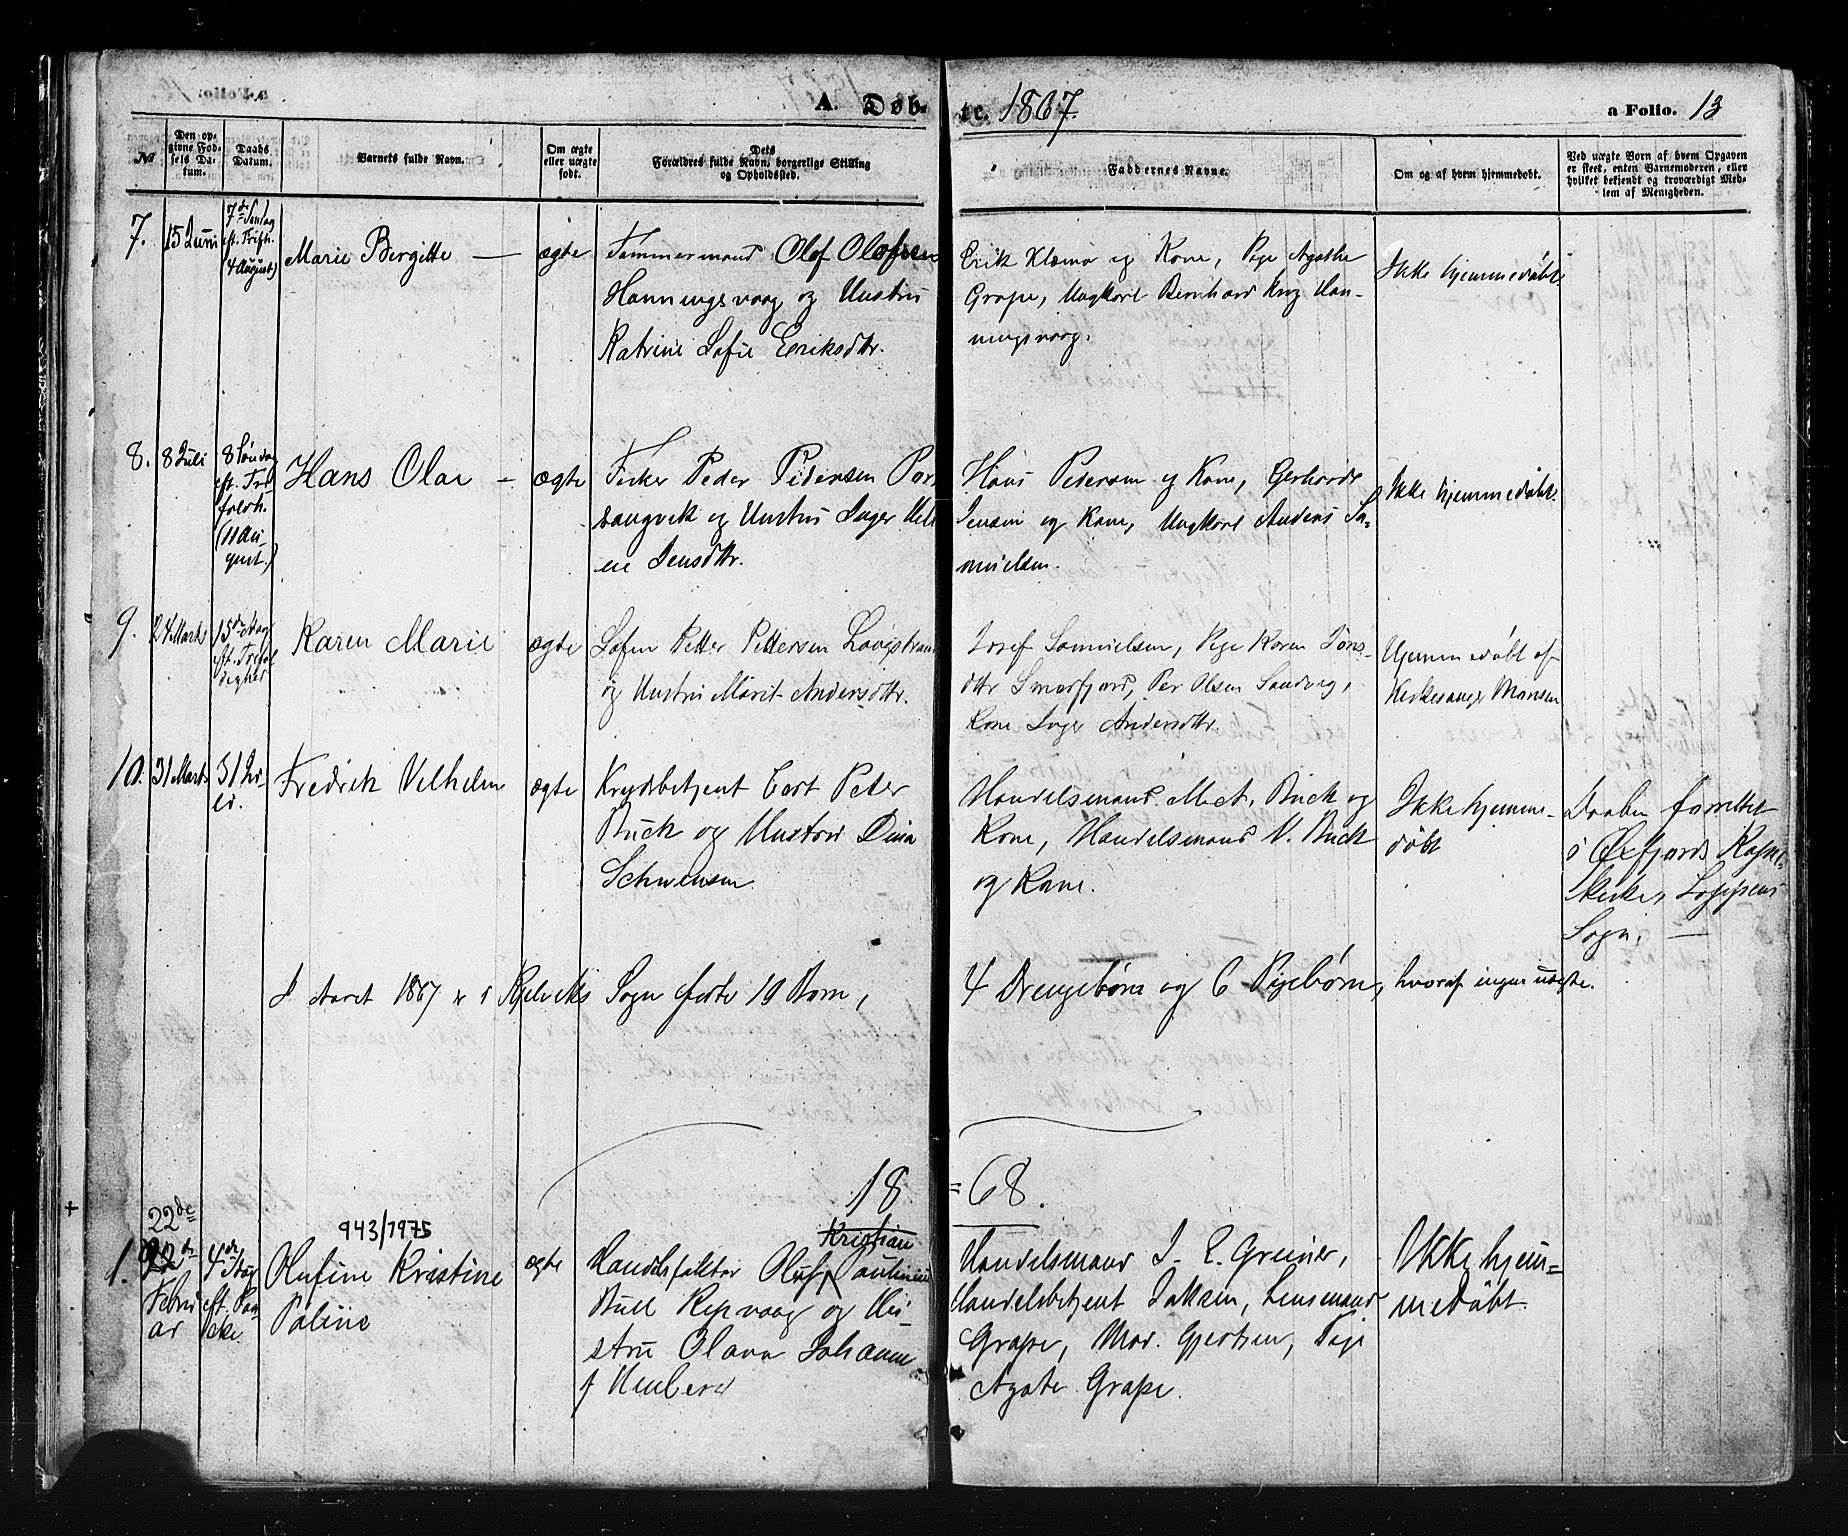 A. Døb- te. 1867.
a Folio. 13
№
Den op-
givne Fød-
sels Da-
tum.
Daabs
Datum.
Barnets fulde Navn.
Om ægte
eller uægte
født.
Dets
Forældres fulde Navn, borgerlige Stilling
og Opholdssted.
Faddernes Navne.
Om og af hvem hjemmedøbt.
Ved uægte Børn af hvem Opgaven
er skeet, enten Barnemoderen, eller
hvilket bekjendt og troværdigt Med-
lem af Menigheden.
7.
15 Juni
7de Søndag
eft. Trifh.
4 August)
Marie Bergitte —
ægte
Tømmermand Olof Olofsen
Honningsvaag og Hustru
Katrine Sofie Eriksdtr.
Erik Klæmo og Kone, Pige Agathe
Grape, Ungkarl Bernhard Krog Hon-
ningsvaag.
Ikke hjemmedøbt.
8.
8 Juli
8 Søndag
eft. Tre-
foldh.
(11 Au-
gust.)
Hans Olai —
ægte
Fisker Peder Pedersen Por
sangvik og Hustru Inger Hele
ne Jensdtr.
Hans Pedersen og Kone, Gerhard
Jensen og Kone, Ungkarl Anders Sa-
muelsen.
Ikke hjemmedøbt.
9.
24 Marts
15de
eft. Trefol
dighed
Karen Marie
ægte
Søfin Petter Pettersen
og Hustru Marit Andersdtr.
Josef Samuelsen, Pige Karen Jøns-
dtr Smørfjord, Per Olsen Sandvig,
Kone Inger Andersdtr.
Hjemmedøbt af
Kirkesanger Monsen
10.
31 Marts
31
Fredrik Vilhelm
ægte
Krydsbetjent Cort Peter
Buck og Hustru Dina
Schwensen
Handelsmand M. Buck og
Kone, Handelsmand N. Buck
og Kone.
Ikke hjemme-
døbt
Daaben forrettet
i Øxfjords Kapel-
kirke, Loppens
Sogn. —
I Aaret 1867 er i Kjelviks Sogn fødte 10 Børn, 4 Drengebørn og 6 Pigebørn, hvoraf ingen uægte.
18 = 68.
22de
943/1975
Kristian
1.
22de
Febru
ar
4de Søg
eft. Paa
ske.
Olufine Kristine
Paline
ægte
Handelsfaktor Oluf Paulinius
Bull Repvaag og Hu-
stru Olava Johanne
f
Handelsmand J. E. Greiner,
Handelsbetjent Jaksen, Lensmand
Grape, Mad. Gjertsen, Pige
Agate Grape.
Ikke hjem=
medøbt.